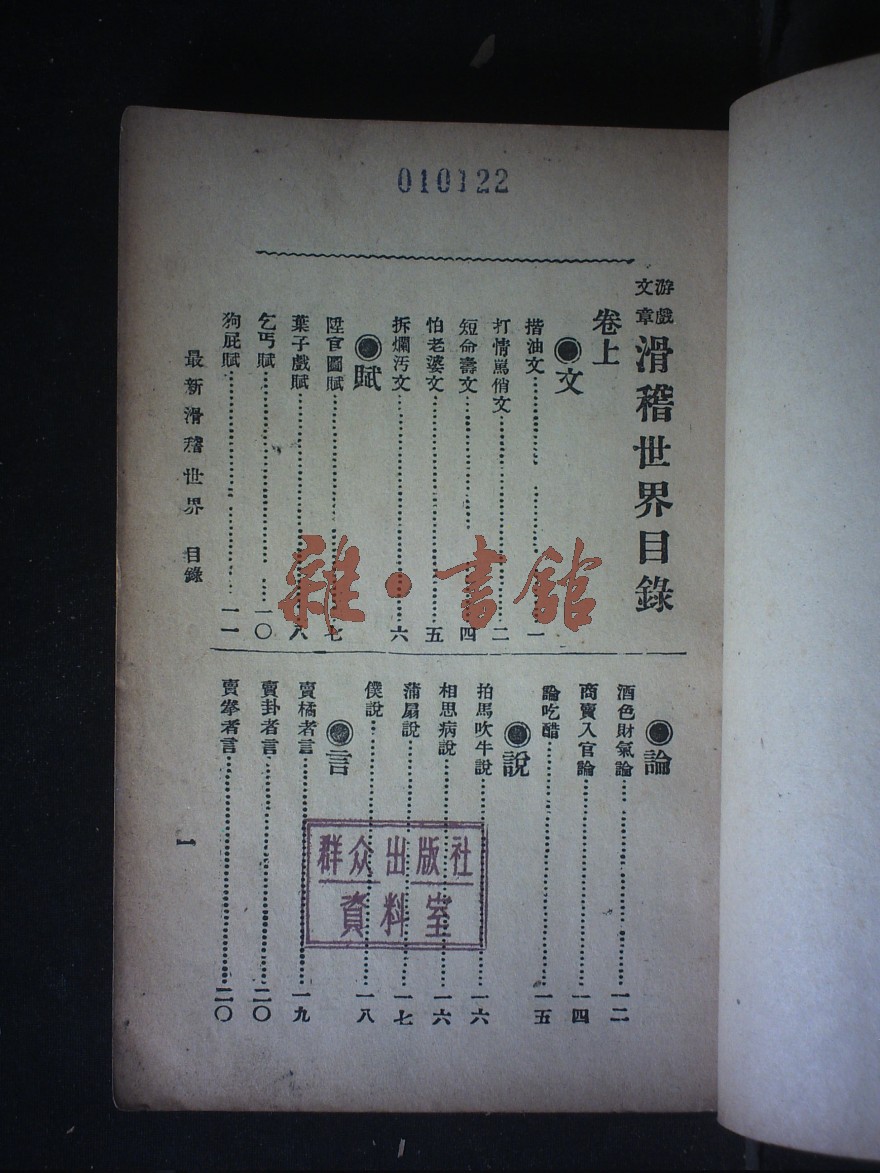 010122
游戲文章 滑稽世界目錄
卷上
●文
揩油文 一
打情罵俏文 二
短命壽文 四
怕老婆文 五
拆爛汚文 六
●賦
陞官圖賦 七
葉子戲賦 八
乞丐賦 一〇
狗屁賦 一一
●論
酒色財氣論 一二
商賣入官論 一四
論吃醋 一五
●說
拍馬吹牛說 一六
相思病說 一六
蒲扇說 一七
僕說 一八
●言
賣橘者言 一九
賣卦者言 二〇
賣拳者言 二〇
最新滑稽世界 目錄
一
雜·書館
群众出版社
資料室